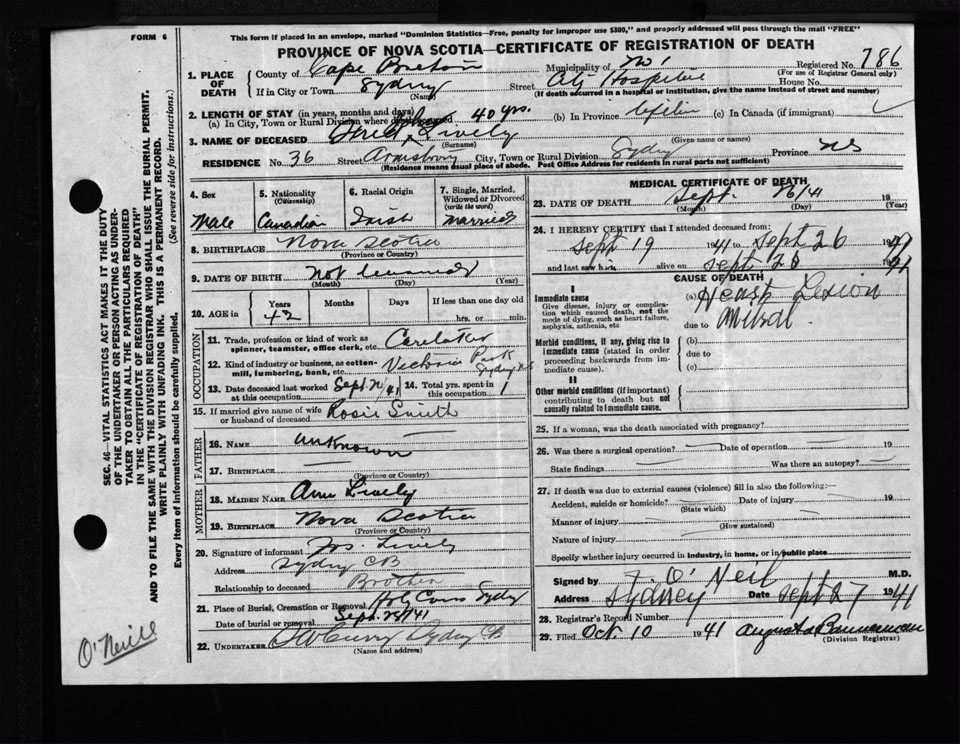 FORM 6
This form if placed in an envelope, marked "Dominion Statistics—Free, penalty for improper use $300," and properly addressed will pass through the mail "FREE"
PROVINCE OF NOVA SCOTIA—CERTIFICATE OF REGISTRATION OF DEATH
Registered No. 786
(For use of Registrar General only)
1. PLACE OF DEATH
County of Cape Breton Municipality of No 1
If in City or Town Sydney (Name) Street City Hospital House No.
(If death occurred in a hospital or institution, give the name instead of street and number)
2. LENGTH OF STAY (in years, months and days)
(a) In City, Town or Rural Division where death occurred 40 yrs. (b) In Province Lifetime (c) In Canada (if immigrant)
3. NAME OF DECEASED Lively
(Surname) (Given name or names)
RESIDENCE No. 36 Street City, Town or Rural Division Sydney Province NS
(Residence means usual place of abode. Post Office Address for residents in rural parts not sufficient)
4. Sex Male
5. Nationality (Citizenship) Canadian
6. Racial Origin Irish
7. Single, Married, Widowed or Divorced (write the word) Married
8. BIRTHPLACE Nova Scotia
(Province or Country)
9. DATE OF BIRTH Not
(Month) (Day) (Year)
10. AGE in Years 42 Months Days If less than one day old
hrs. or min.
OCCUPATION
11. Trade, profession or kind of work as spinner, teamster, office clerk, etc.
12. Kind of industry or business, as cotton-mill, lumbering, bank, etc. Victoria Park Sydney N.S
13. Date deceased last worked at this occupation Sept /41 14. Total yrs. spent in this occupation 1
15. If married give name of wife or husband of deceased Rosie Smith
FATHER
16. NAME unknown
17. BIRTHPLACE —
(Province or Country)
MOTHER
18. MAIDEN NAME Ann Lively
19. BIRTHPLACE Nova Scotia
(Province or Country)
20. Signature of informant Jos. Lively
Address Sydney CB
Relationship to deceased Brother
21. Place of Burial, Cremation or Removal Holy Cross Sydney
Date of burial or removal Sept. 28/41
22. UNDERTAKER Curry Sydney CB
(Name and address)
MEDICAL CERTIFICATE OF DEATH
23. DATE OF DEATH Sept. 26/41 19
(Month) (Day) (Year)
24. I HEREBY CERTIFY that I attended deceased from:
Sept 19 1941 to Sept 26 1941
and last saw him alive on Sept 1941
CAUSE OF DEATH
I
Immediate cause (a) Heart Lesion
Give disease, injury or complication which caused death, not the mode of dying, such as heart failure, asphyxia, asthenia, etc
due to Mitral
Morbid conditions, if any, giving rise to immediate cause (stated in order proceeding backwards from immediate cause)
(b)
due to
(c)
II
Other morbid conditions (if important) contributing to death but not causally related to immediate cause.
25. If a woman, was the death associated with pregnancy?
26. Was there a surgical operation? — Date of operation — 19
State findings — Was there an autopsy? —
27. If death was due to external causes (violence) fill in also the following:—
Accident, suicide or homicide? Date of injury 19
(State which)
Manner of injury
(How sustained)
Nature of injury
Specify whether injury occurred in industry, in home, or in public place
Signed by F. O'Neil M.D.
Address Sydney Date Sept 27 1941
28. Registrar's Record Number
29. Filed Oct. 10 1941 Augusta Bannerman
(Division Registrar)
SEC. 46—VITAL STATISTICS ACT MAKES IT THE DUTY
OF THE UNDERTAKER OR PERSON ACTING AS UNDERTAKER TO OBTAIN ALL THE PARTICULARS REQUIRED
IN THE "CERTIFICATE OF REGISTRATION OF DEATH"
AND TO FILE THE SAME WITH THE DIVISION REGISTRAR WHO SHALL ISSUE THE BURIAL PERMIT.
WRITE PLAINLY WITH UNFADING INK. THIS IS A PERMANENT RECORD.
Every item of information should be carefully supplied. (See reverse side for instructions.)
O'Neill